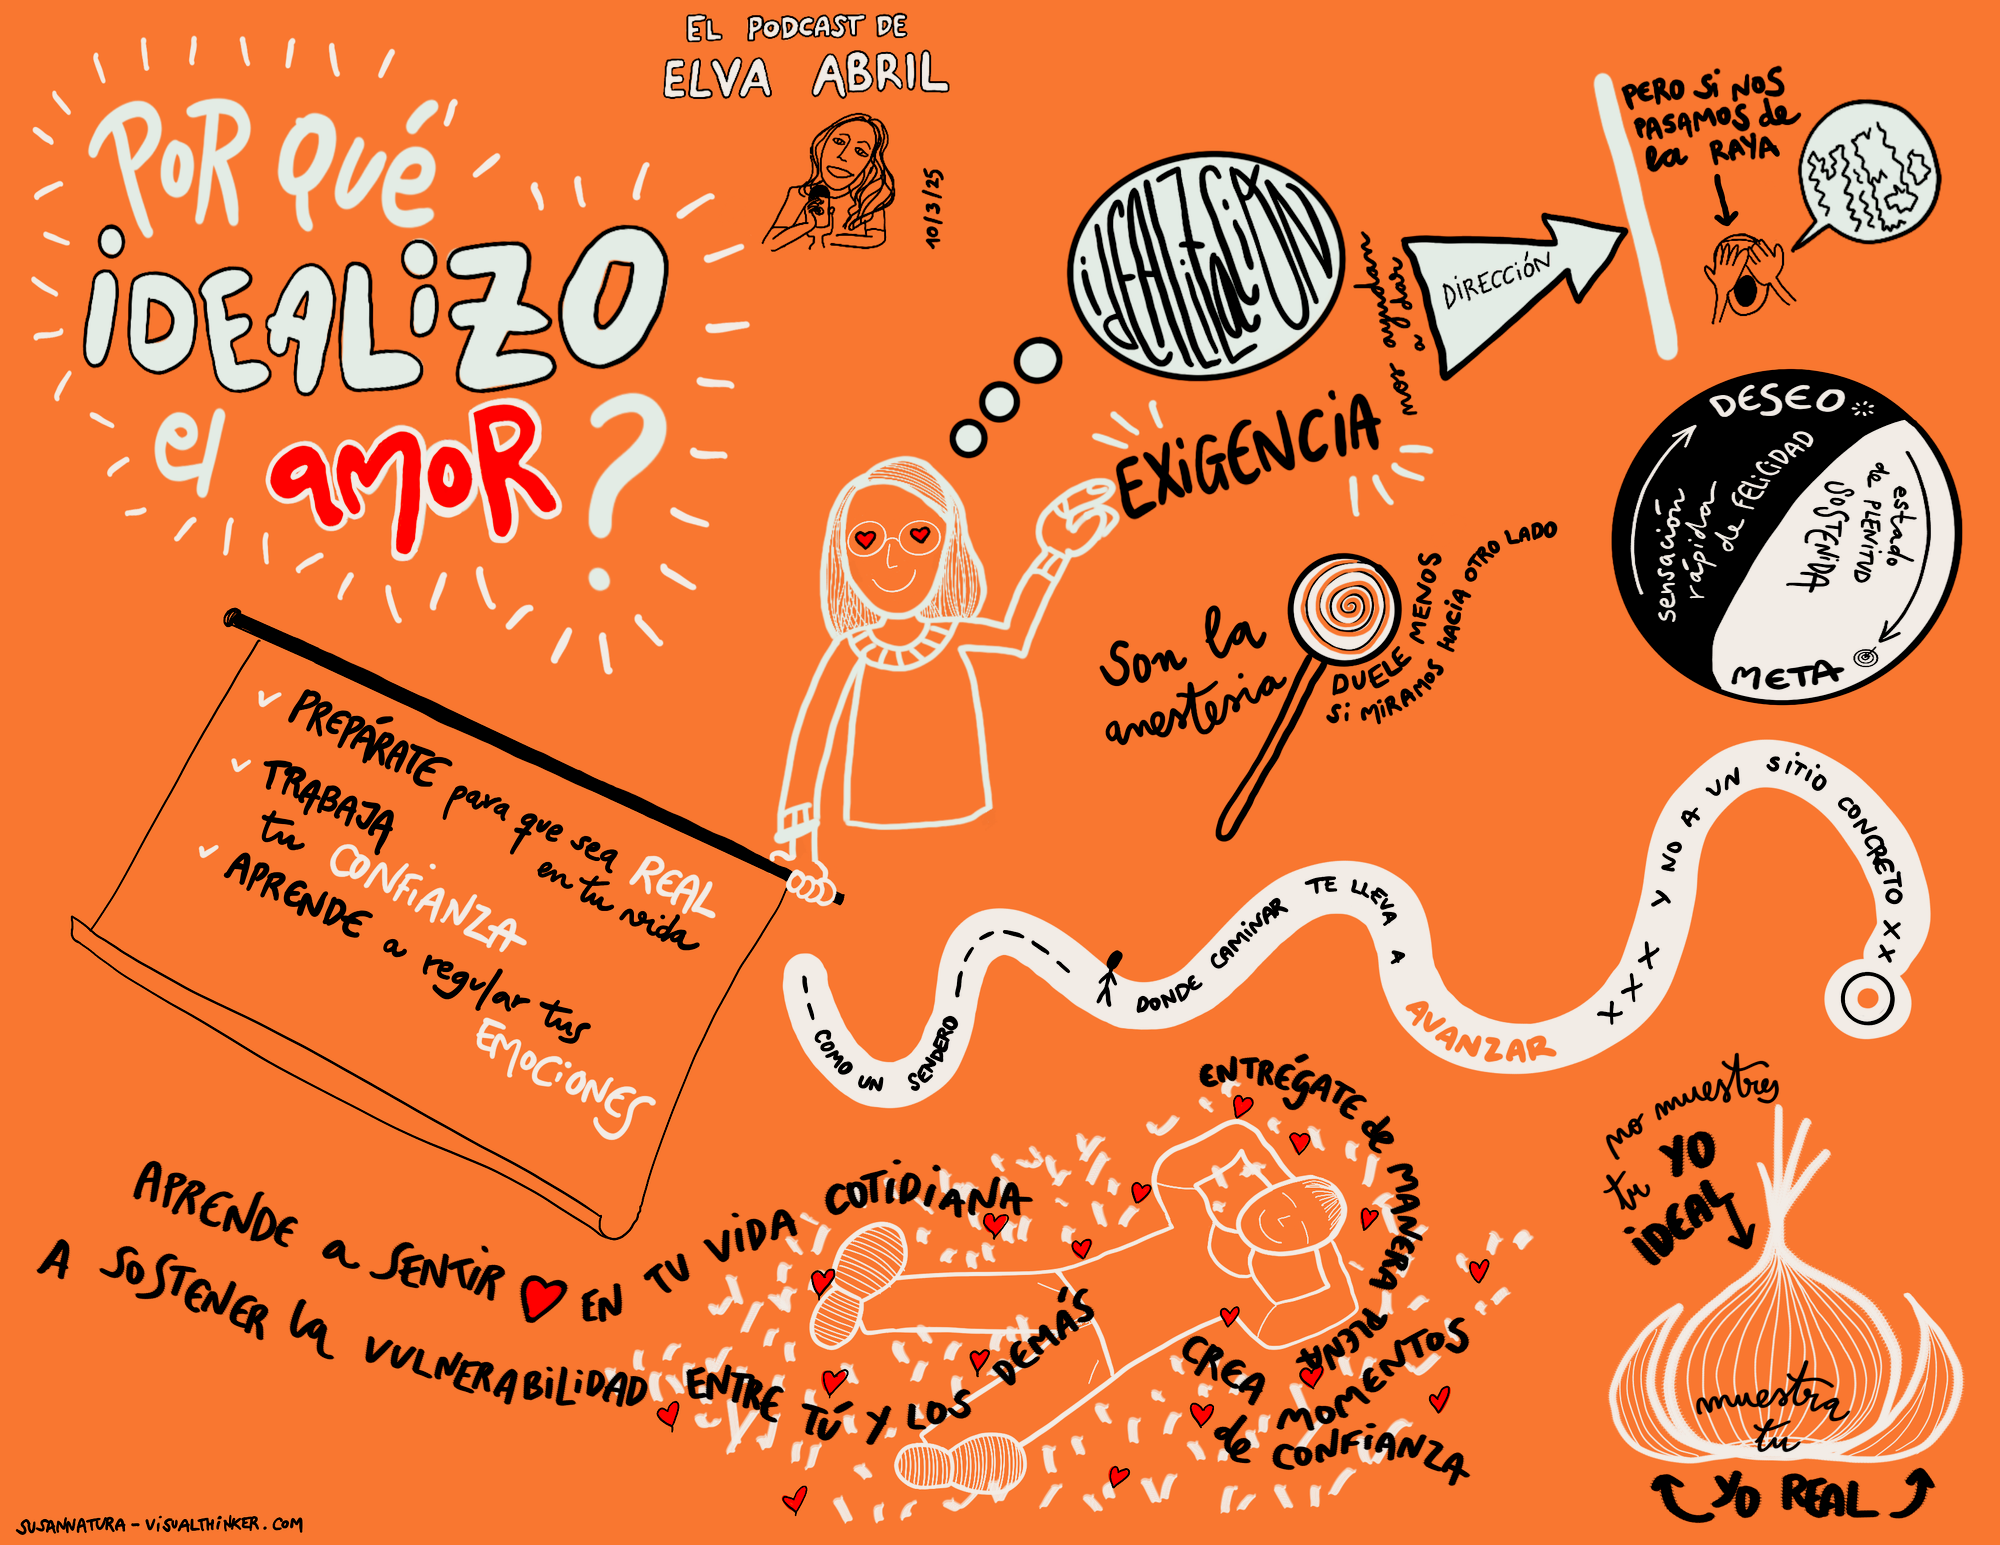 EL PODCAST DE
ELVA ABRIL
10/3/25
POR QUÉ
iDEALiZO
el amor?
iDEALiZACiÓN
EXiGENCiA
nos ayudan
a dar
DIRECCIÓN
PERO Si NOS
PASAMOS de
la RAYA
DESEO
sensación
rápida
de FELICIDAD
estado
de PLENITUD
SOSTENiDA
META
Son la
anestesia
DUELE MENOS
Si MiRAMOS HACiA OTRO LADO
PREPÁRATE para que sea REAL
en tu vida
TRABAJA
tu CONFiANZA
APRENDE a regular tus
EMOCiONES
COMO UN SENDERO
DONDE CAMiNAR TE LLEVA A
AVANZAR
XXXX Y NO A UN SiTiO CONCRETO XX
APRENDE a SENTIR ♥ EN TU ViDA COTiDiANA
A SOSTENER la VULNERABiLiDAD ENTRE TÚ Y LOS DEMÁS
ENTRÉGATE de MANERA PLENA
CREA MOMENTOS
de CONFiANZA
no muestres
tu YO
iDEAL
muestra
tu
YO REAL
SUSANNATURA - ViSUALTHiNKER.COM